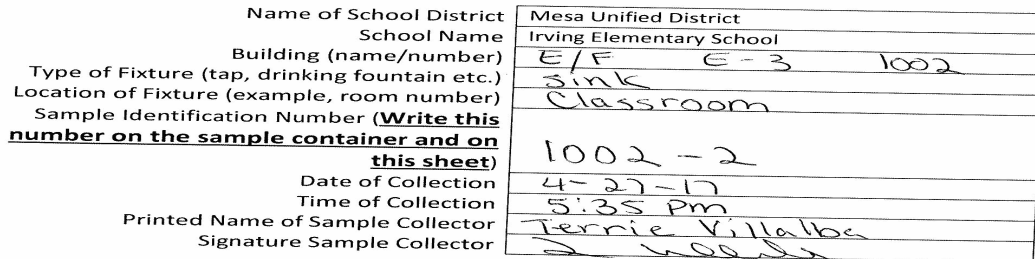 Name of School District Mesa Unified District
School Name Irving Elementary School
Building (name/number) E/F E-3 1002
Type of Fixture (tap, drinking fountain etc.) Sink
Location of Fixture (example, room number) Classroom
Sample Identification Number (Write this
number on the sample container and on
this sheet) 1002-2
Date of Collection 4-27-17
Time of Collection 5:35 pm
Printed Name of Sample Collector Terrie Villalba
Signature Sample Collector